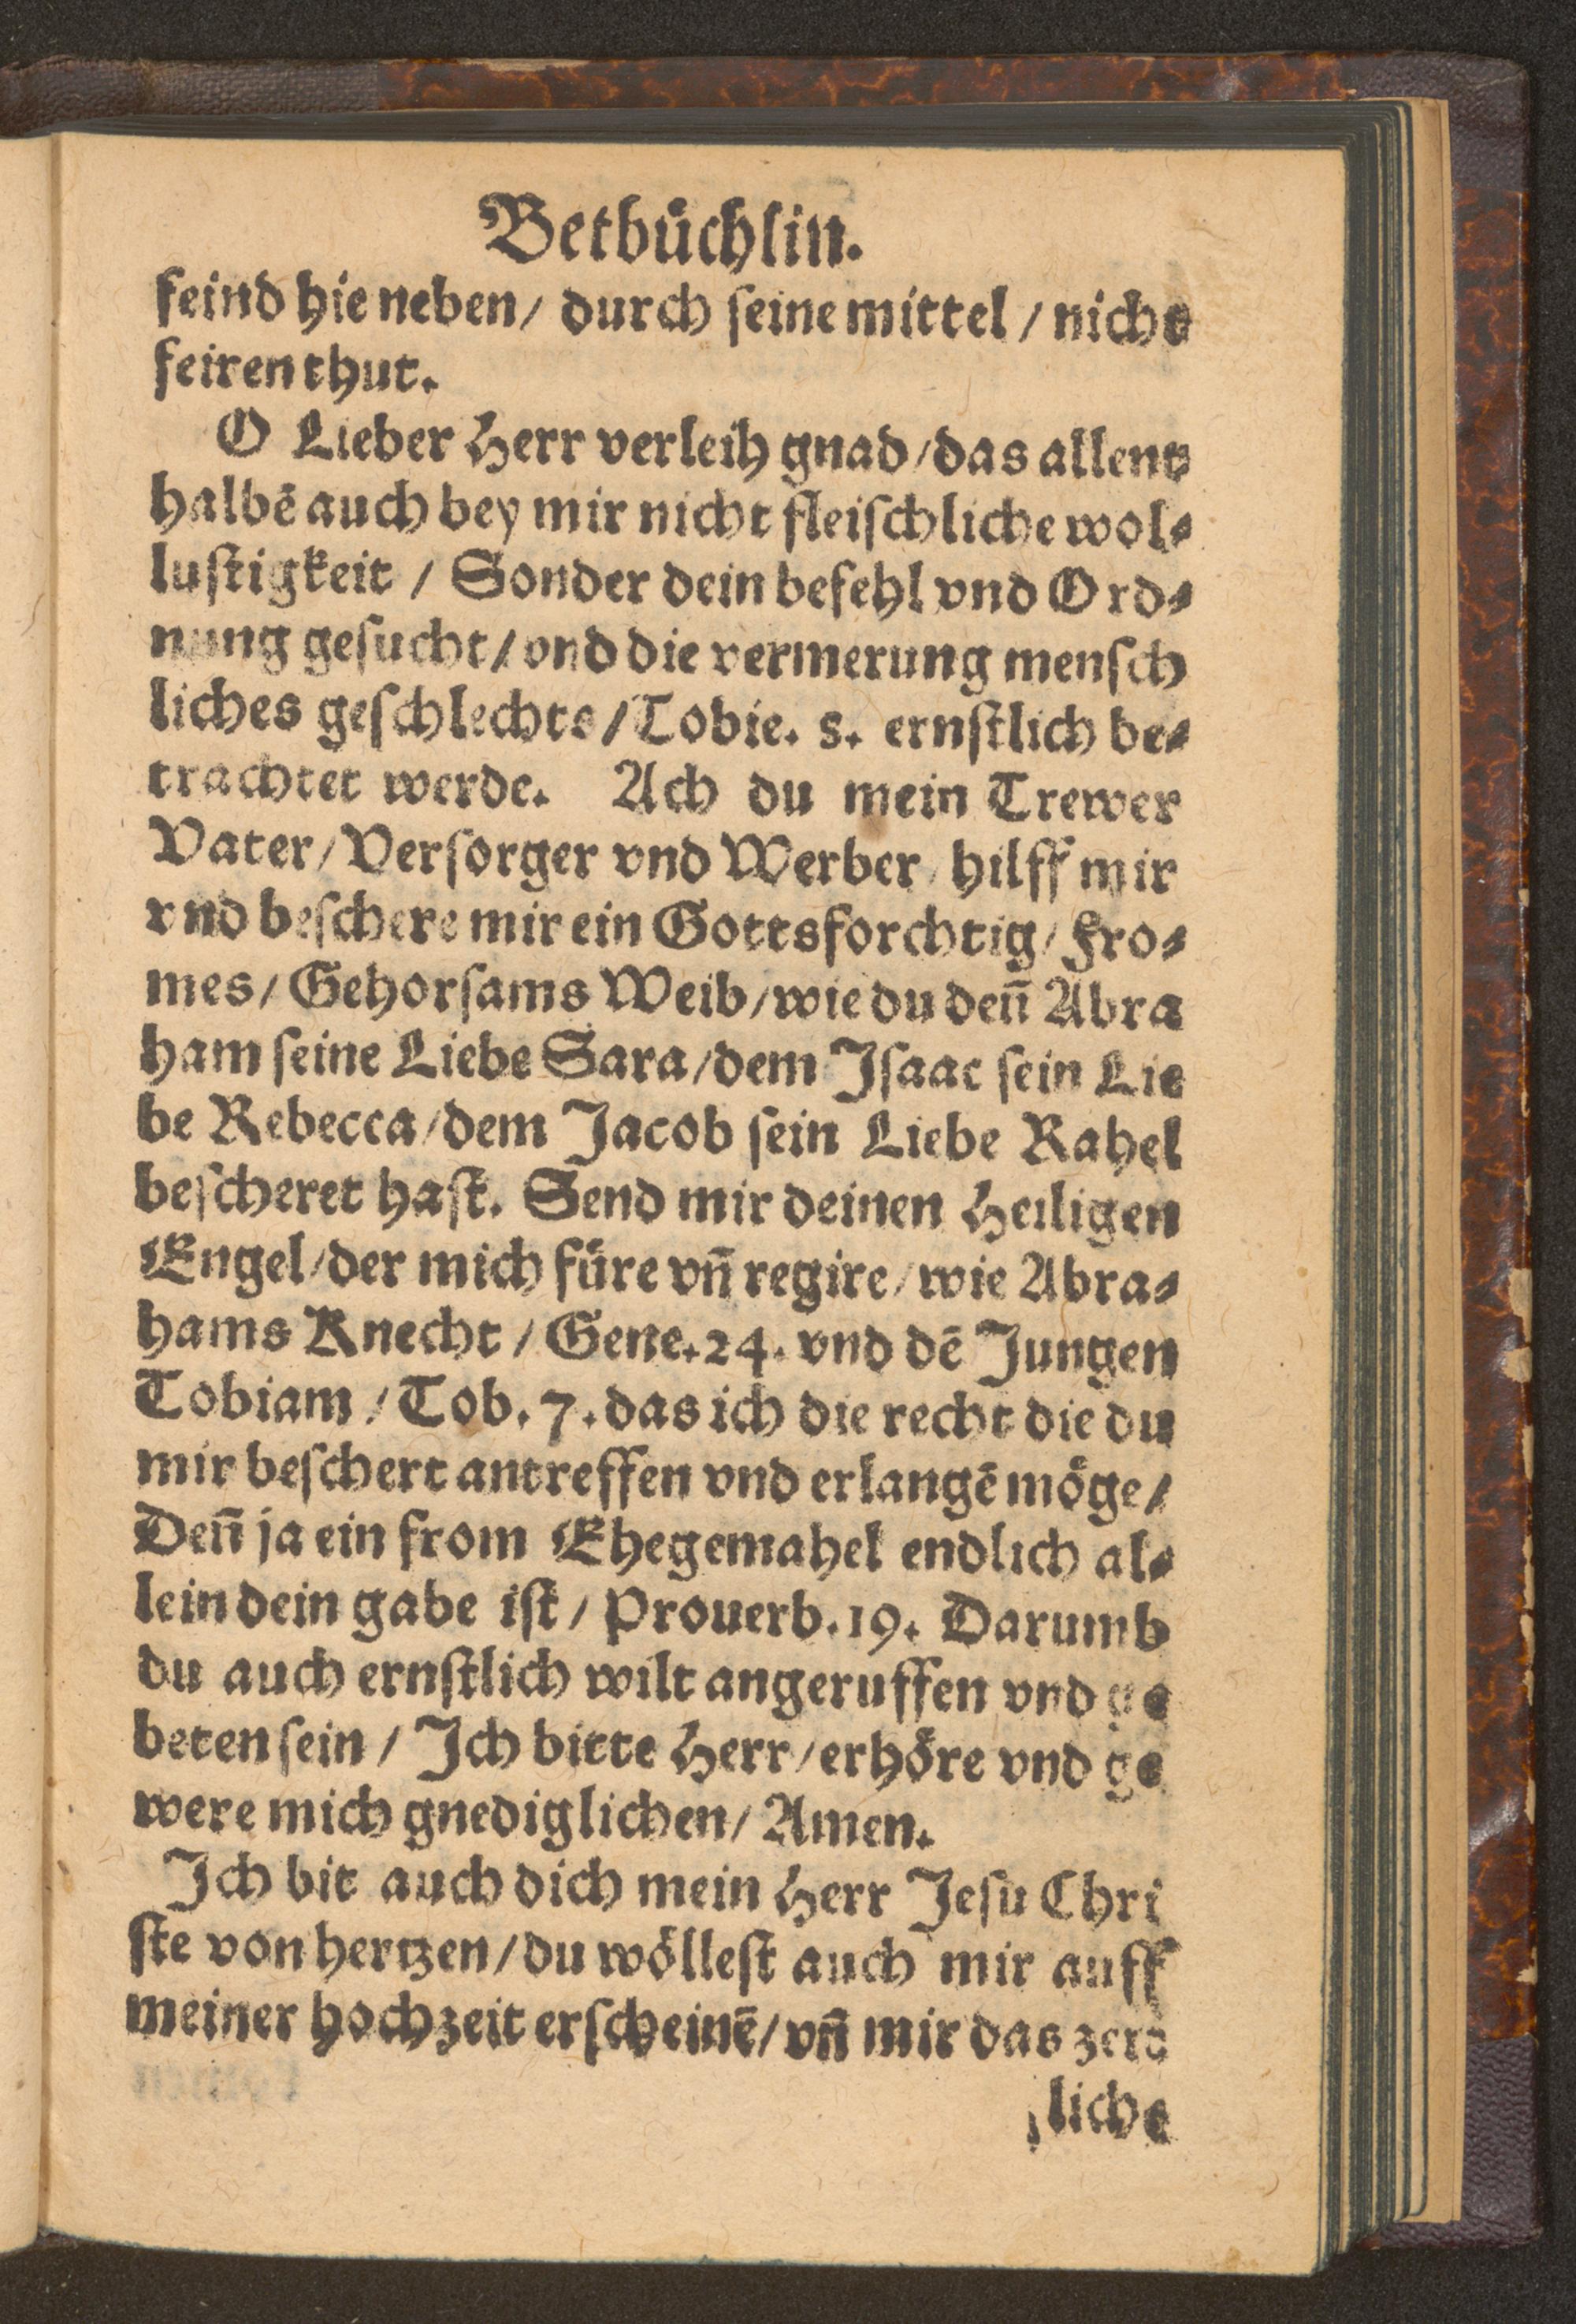 Betbuͤchlin.
feind hie neben/ durch ſeine mittel / nicht
feiren thut.
O Lieber Herr verleih gnad/das allent
halbē auch bey mir nicht fleiſchliche wol⸗
luſtigkeit / Sonder dein befehl vnd Ord⸗
nung geſucht/vnd die vermerung menſch
liches geſchlechts/Tobie. 8. ernſtlich be⸗
trachtet werde. Ach du mein Trewer
Vater/Verſorger vnd Werber/hilff mir
vnd beſchere mir ein Gottsforchtig/ Fro⸗
mes/ Gehorſams Weib/wie du deñ Abra
ham ſeine Liebe Sara/dem Iſaac ſein Lie
be Rebecca/dem Jacob ſein Liebe Rahel
beſcheret haſt. Send mir deinen Heiligen
Engel/der mich fuͤre vñ regire/wie Abra⸗
hams Knecht / Gene.24. vnd dē Jungen
Tobiam / Tob. 7. das ich die recht die du
mir beſchert antreffen vnd erlangē moͤge/
Deñ ja ein from Ehegemahel endlich al⸗
lein dein gabe iſt / Prouerb.19. Darumb
du auch ernſtlich wilt angeruffen vnd ge
beten ſein / Ich bitte Herr/erhoͤre vnd ge
were mich gnediglichen/ Amen.
Ich bit auch dich mein Herr Jeſu Chri
ſte von hertzen/du woͤlleſt auch mir auff
meiner hochzeit erſcheinē/ vñ mir das zert
liche